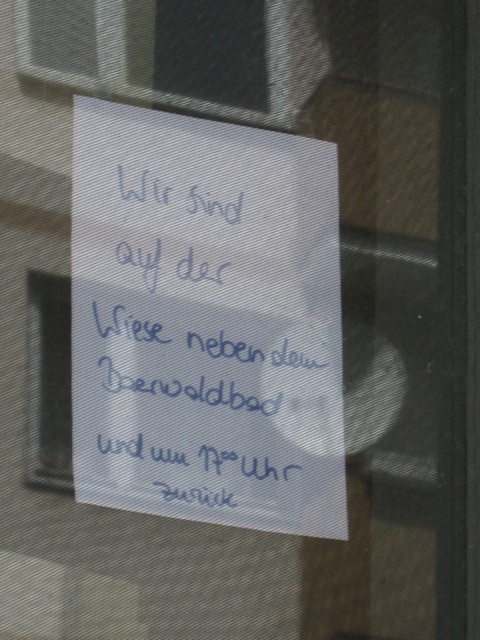 Wir sind
auf der
Wiese neben dem
Baerwaldbad
und um 17⁰⁰ Uhr
zurück